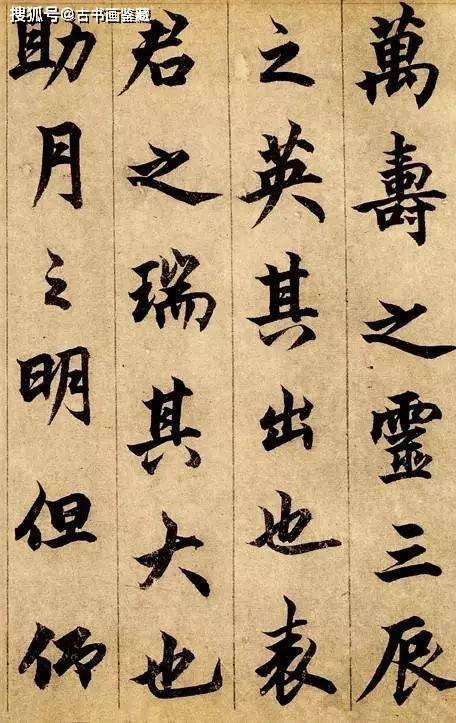 搜狐号@古书画鉴藏
萬壽之靈三辰
之英其出也表
君之瑞其大也
助月之明但仰